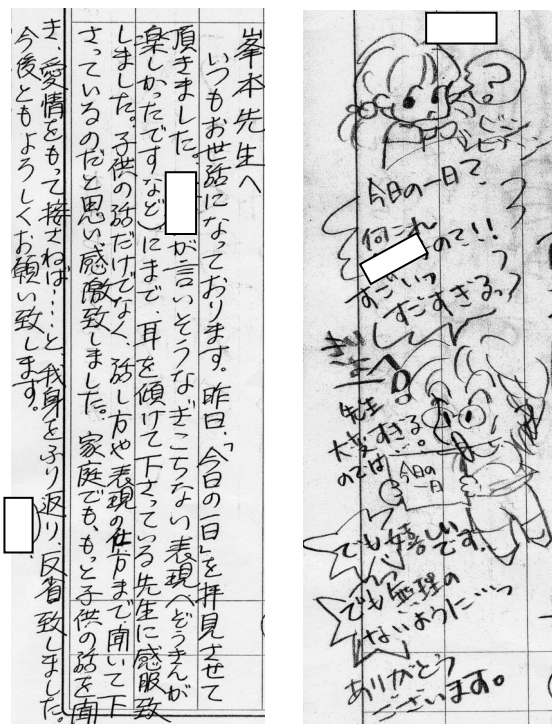 峯本先生へ
いつもお世話になっております。昨日、「今日の一日」を拝見させて
頂きました。
が言いそうなぎこちない表現(ぞうきんが
楽しかったですなど)にまで、耳を傾けて下さっている先生に感服致
しました。子供の話だけでなく、話し方や表現の仕方まで聞いて下
さっているのだと思い、感激致しました。家庭でも、もっと子供の話を聞
き、愛情をもって接さねば……と、我身をふり返り、反省致しました。
今後ともよろしくお願い致します。
?
今日の一日で
何これ
の
で!!
すごいっ
すごすぎるっ
先生
大変すぎる
のでは…。
今日の
一日
でも嬉しい
です。
でも無理の
ないように…っ
ありがとう
ございます。